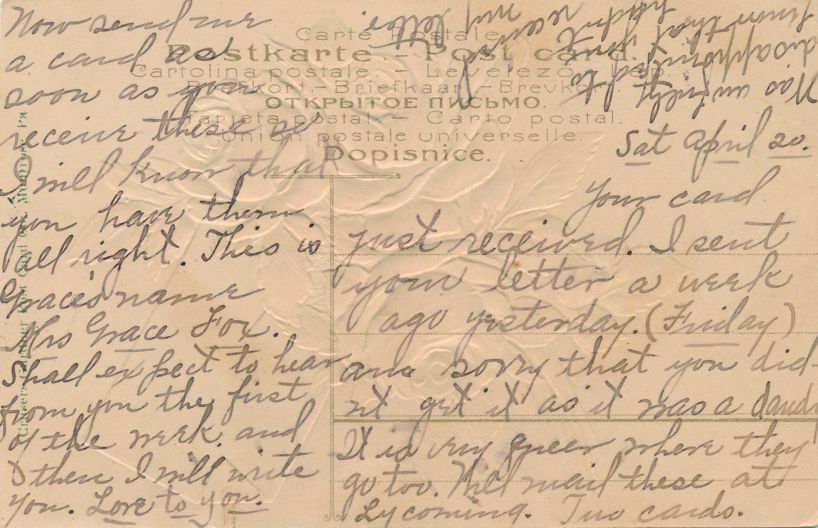 Carte Postale
Postkarte. – Post card.
Cartolina postale. – Levelező-Lap.
– Briefkaart – Brevkort
ОТКРЫТОЕ ПИСЬМО.
Tarjeta postal. – Carto postal.
Union postale universelle.
Dopisnice.
Sat April 20.
Your card
just received. I sent
your letter a week
ago yesterday. (Friday)
and sorry that you did-
nt get it as it was a dandy
It is very queer where they
go too. Will mail these at
Lycoming. Two cards.
Now send me
a card as
soon as you
receive these so
I will know that
you have them
all right. This is
Grace's name
Mrs Grace Fox.
Shall expect to hear
from you the first
of the week and
then I will write
you. Love to you.
Was awfully
disappointed to
know that you
hadn't
received
my letter